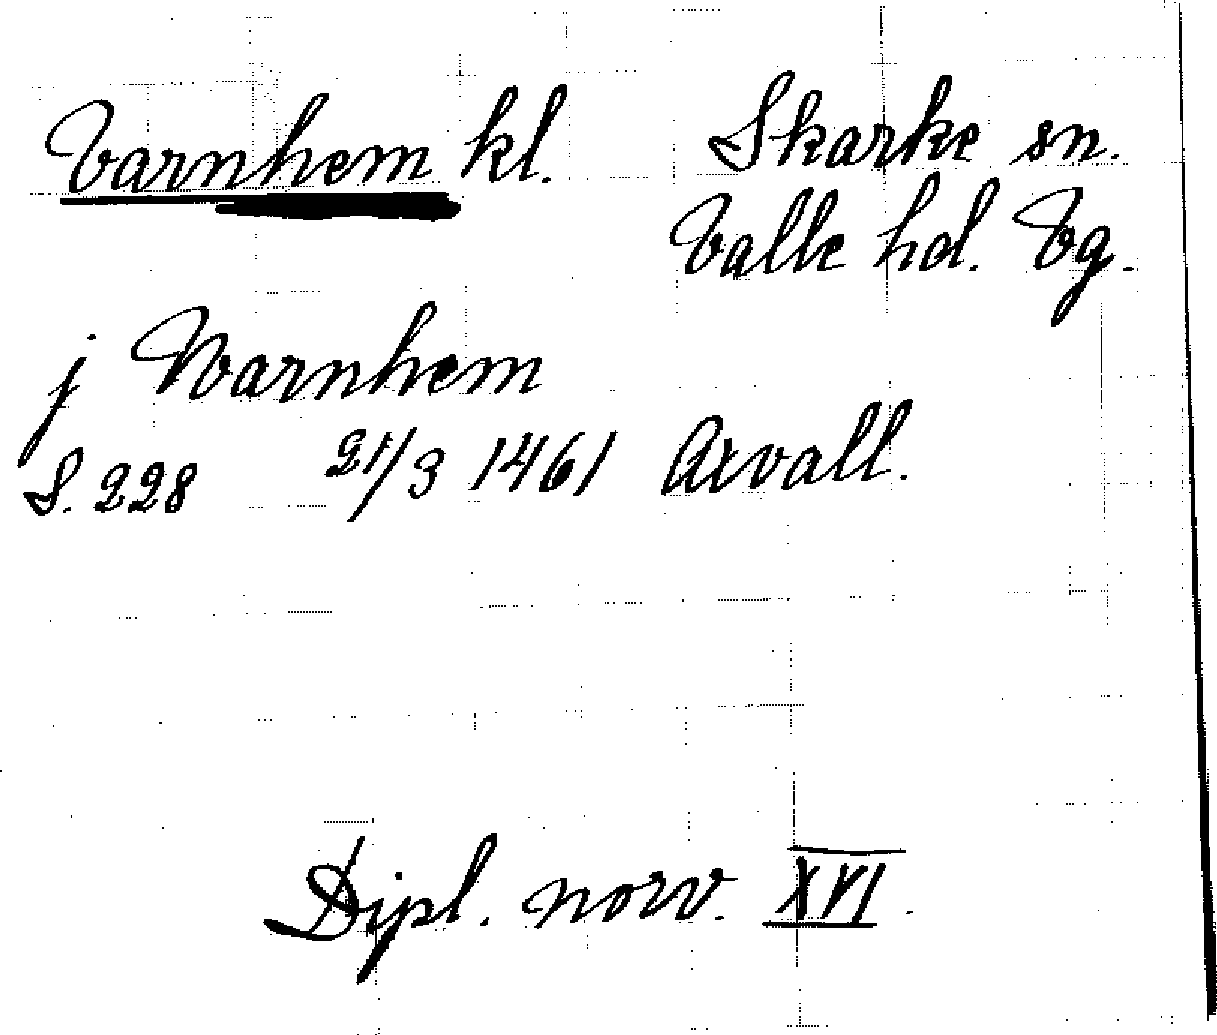 Varnhem kl. Skarke sn.
Valle hd. Vg.
j Warnhem
S. 228 21/3 1461 Axvall.
Dipl. norv. XVI.